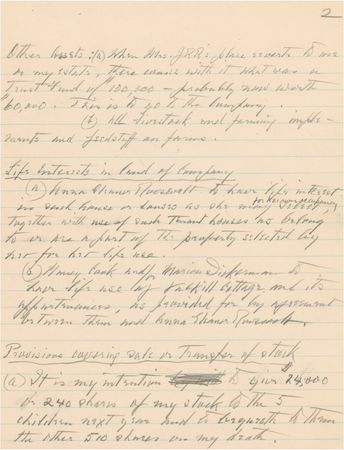 2
Other Assets: (a) When Mrs. J.R.R's place reverts to me
or my estate, there comes with it what was a
trust fund of 100,000 - probably now worth
$60,000. This is to go to the Company.
(b) All livestock and farming imple-
ments and feedstuff on farms.
Life Interests in land of Company
(a) Anna Eleanor Roosevelt to have life interest
in such house or houses as she may select,
for her own occupancy
together with use of such tenant houses as belong
to or are a part of the property selected by
her for her life use.
(b) Nancy Cook and/or Marion Dickerman to
have life use of Valkill Cottage and its
appurtenances, as provided for by agreement
between them and Anna Eleanor Roosevelt.
Provisions covering sale or transfer of stock
(a) It is my intention to give $24,000
or 240 shares of my stock to the 5
children next year and to bequeath to them
the other 510 shares on my death.